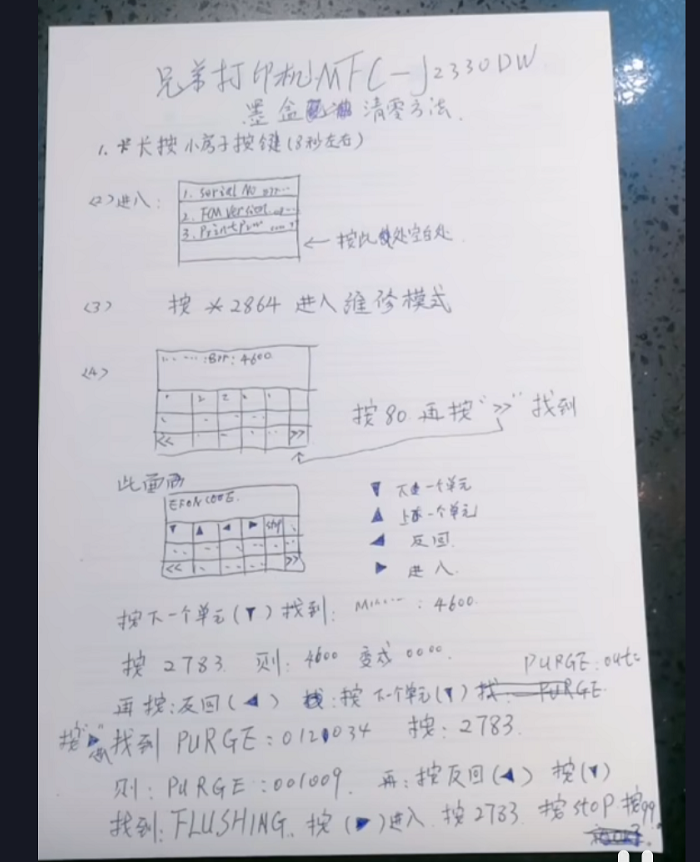 兄弟打印机MFC-J2330DW
墨盒 清零方法.
1. 长按小房子按键(3秒左右)
<2>进入:
1. Serial No
2. FCM Version
3. Print
← 按此处空白处.
<3> 按 *2864 进入维修模式
<4>
Err: 4600
<< >>
按80 再按“>>”找到
此画面
▼ ▲ ◀ ▶ stop
<< >>
▼ 一个单元
▲ 上一个单元
◀ 反回.
▶ 进入.
按下一个单元(▼)找到: : 4600.
按 2783. 则: 4600 变成 0000.
PURGE:
再按:反回(◀) 按下一个单元(▼)找 PURGE
按“▶” 找到 PURGE: 0121034 按: 2783.
则: PURGE: 001009. 再:按反回(◀) 按(▼)
找到: FLUSHING. 按(▶)进入. 按2783. 按stop.按99